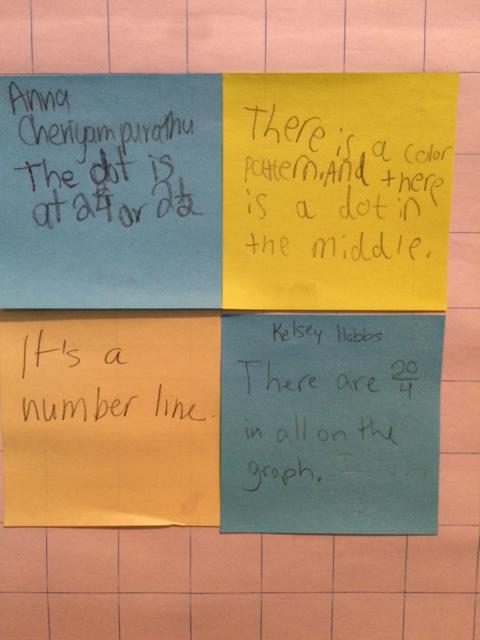 Anna
Cheriyampurathu
The dot is
at 2 2/4 or 2 1/2
There is a color
pattern. And there
is a dot in
the middle.
It's a
number line.
Kelsey Hobbs
There are 20/4
in all on the
graph.